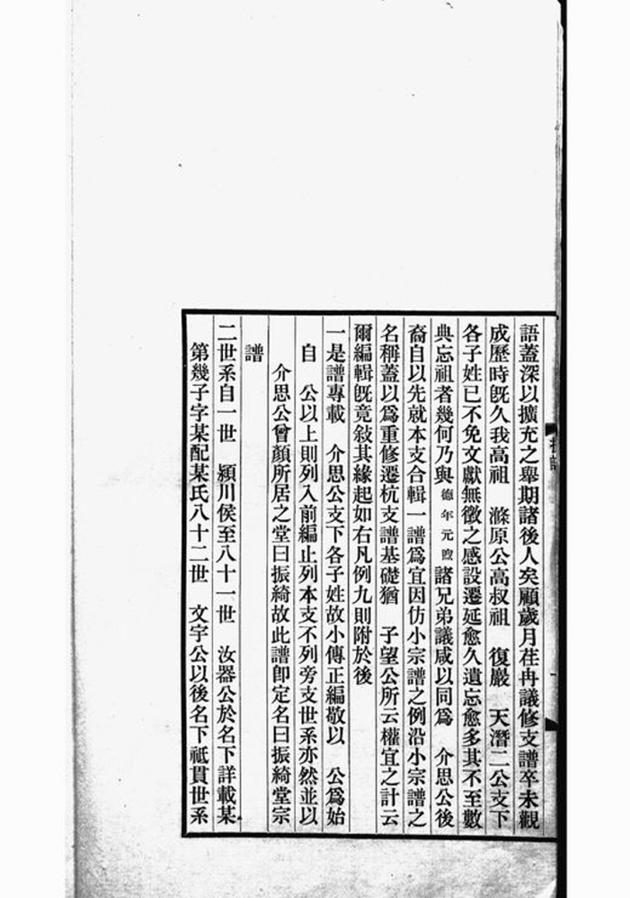 語蓋深以擴充之舉期諸後人矣顧歲月荏冉議修支譜卒未觀
成歷時旣久我高祖　滌原公高叔祖　復巖　天潛二公支下
各子姓已不免文獻無徵之感設遷延愈久遺忘愈多其不至數
典忘祖者幾何乃與德年元煦諸兄弟議咸以同爲　介思公後
裔自以先就本支合輯一譜爲宜因仿小宗譜之例沿小宗譜之
名稱蓋以爲重修遷杭支譜基礎猶　子望公所云權宜之計云
爾編輯旣竟敍其緣起如右凡例九則附於後
一是譜專載　介思公支下各子姓故小傳正編敬以　公爲始
自　公以上則列入前編止列本支不列旁支世系亦然並以
介思公曾顏所居之堂曰振綺故此譜卽定名曰振綺堂宗
譜
二世系自一世　潁川侯至八十一世　汝器公於名下詳載某
第幾子字某配某氏八十二世　文宇公以後名下祇貫世系